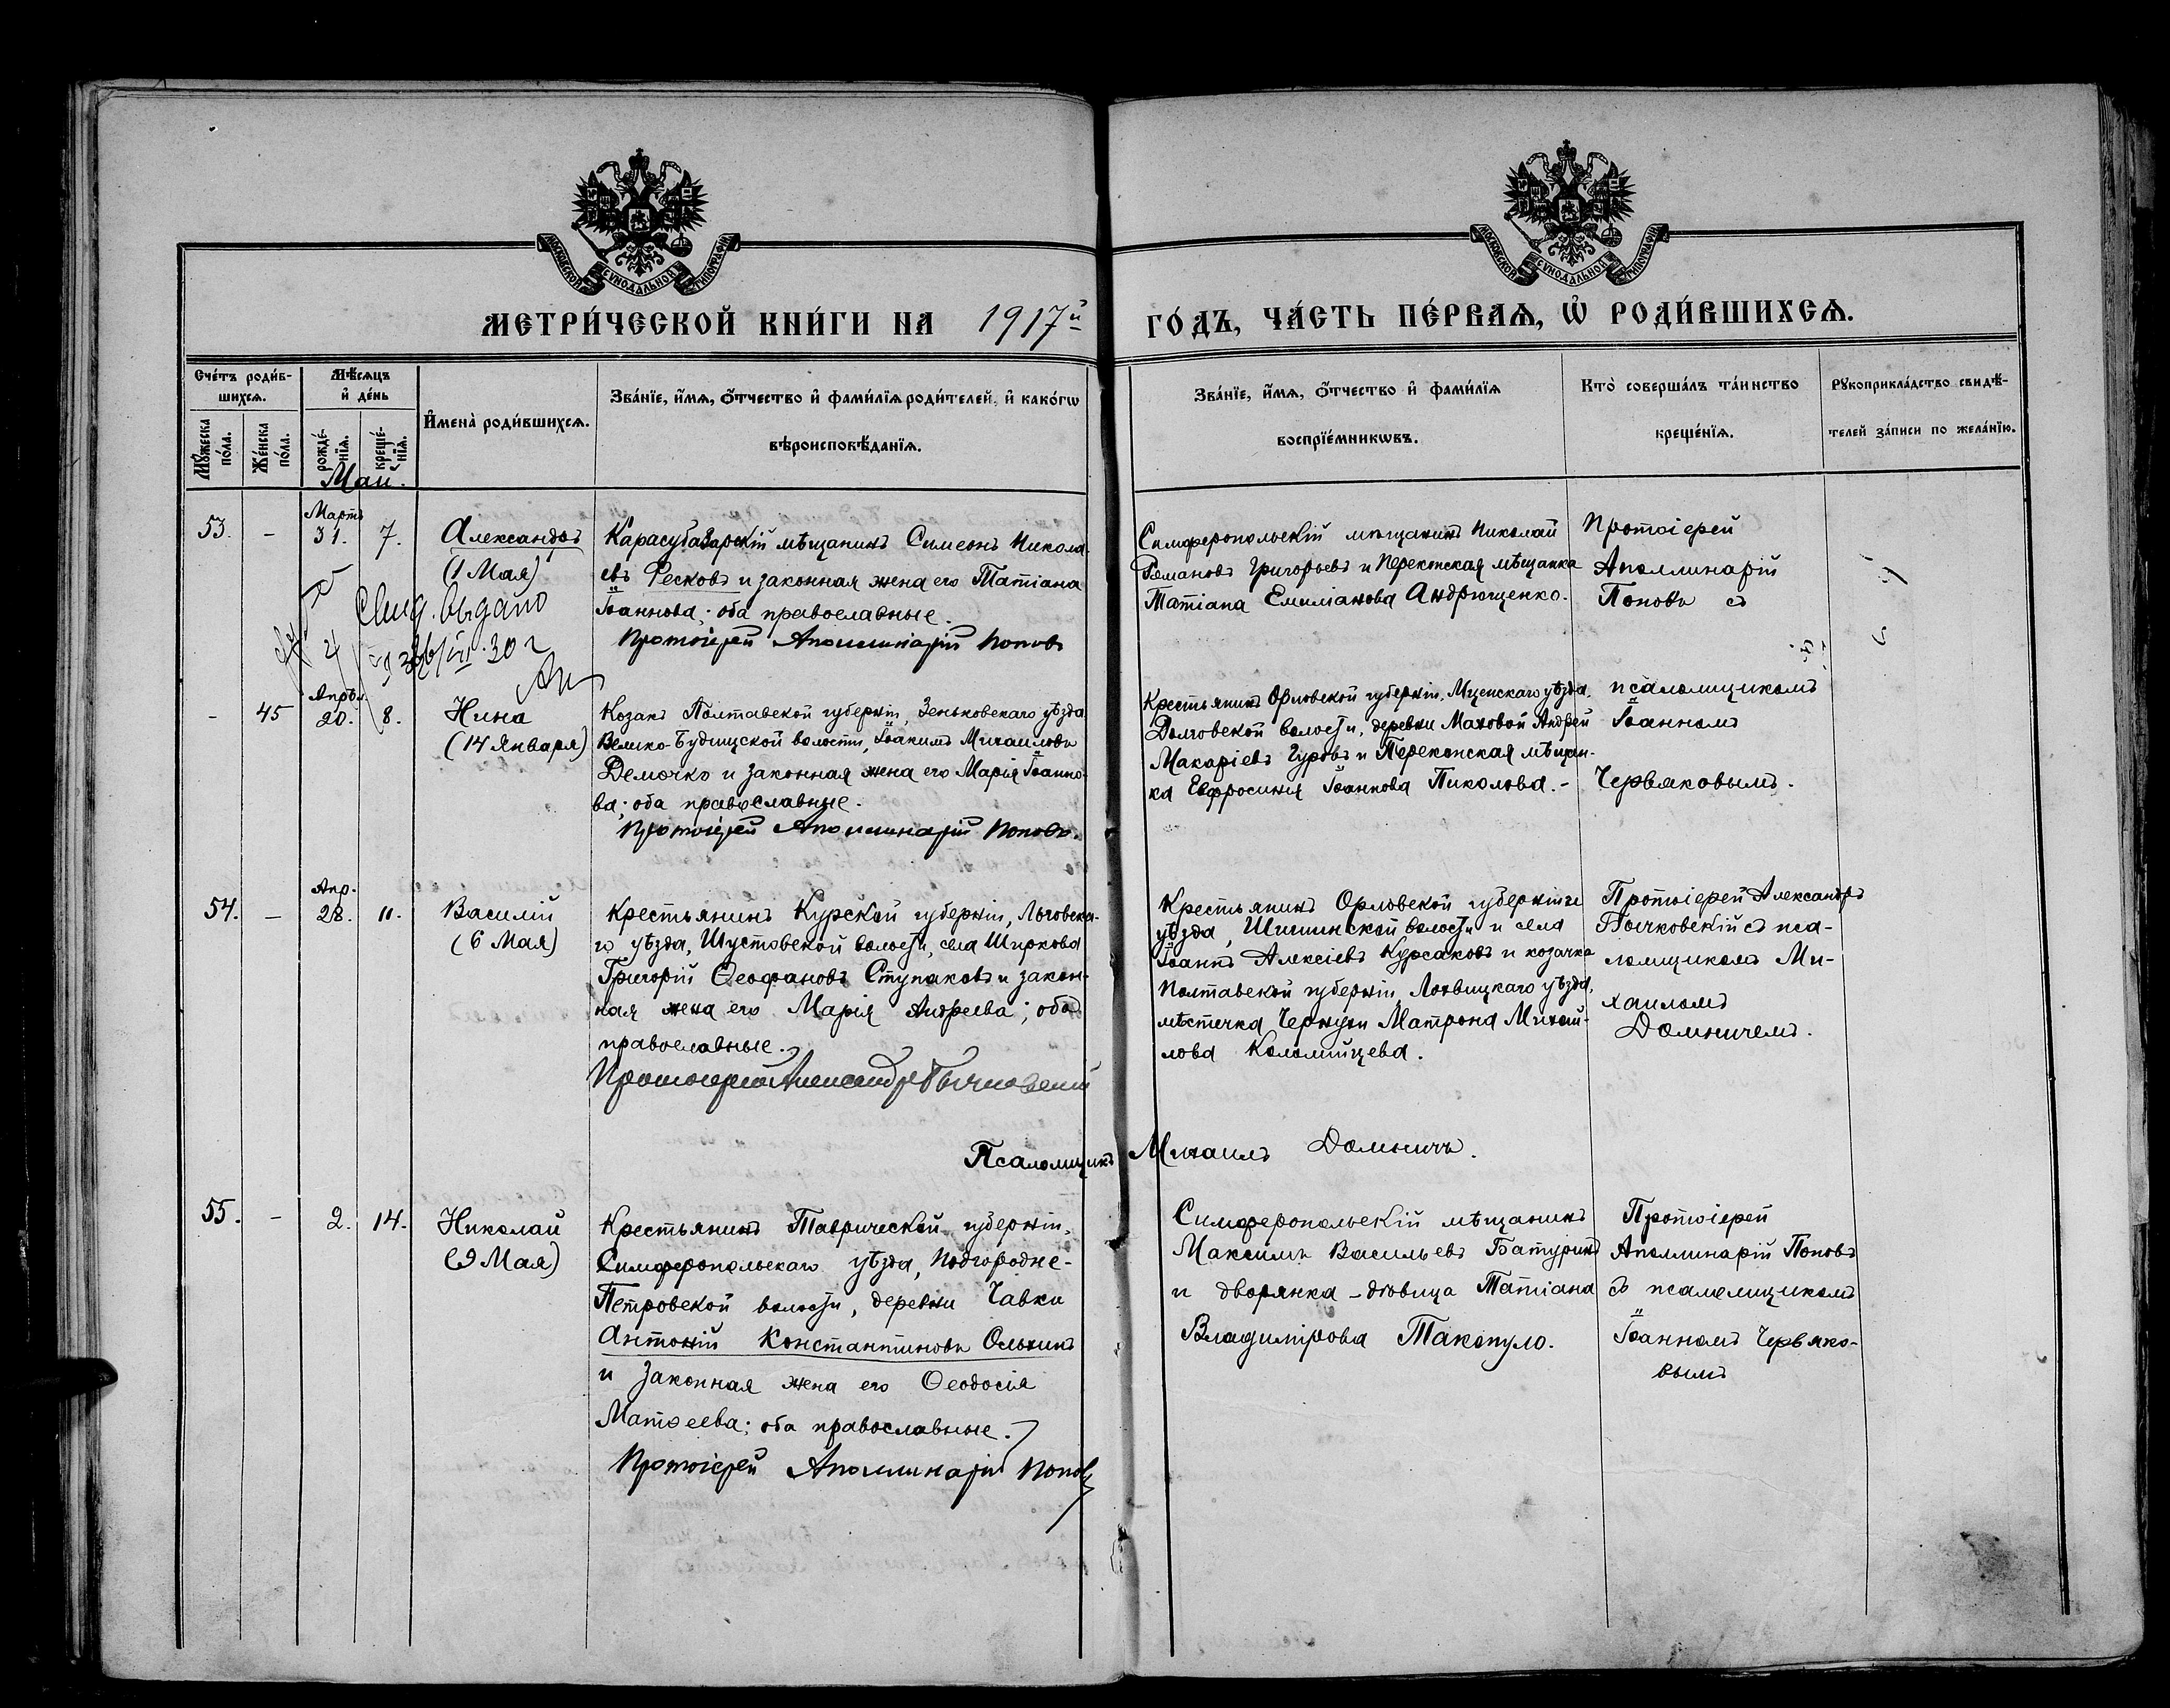 МОСКОВСКОЙ СѴНОДАЛЬНОЙ ТИПОГРАФІИ
МОСКОВСКОЙ СѴНОДАЛЬНОЙ ТИПОГРАФІИ
МЕТРИ́ЧЕСКОЙ КНИ́ГИ НА 1917й ГО́ДЪ, ЧА́СТЬ ПЕ́РВАѦ, Ѡ҆ РОДИ́ВШИХСѦ.
Сче́тъ роди́в-
шихсѧ.
Мꙋ́жеска по́ла.
Же́нска по́ла.
Мѣ́сѧцъ
и҆ де́нь
рожде́-
нїѧ.
креще́-
нїѧ.
И҆мена̀ роди́вшихсѧ.
Зва́нїе, и҆́мѧ, ѻ҆́тчество и҆ фами́лїѧ роди́телей, и҆ како́гѡ
вѣроисповѣ́данїѧ.
Зва́нїе, и҆́мѧ, ѻ҆́тчество и҆ фами́лїѧ
воспрїе́мникѡвъ.
Кто̀ соверша́лъ та́инство
креще́нїѧ.
Рꙋкоприкла́дство свидѣ́-
телей за́писи по жела́нїю.
Май.
53.
-
Мартъ
31.
7.
Александръ
(1 Мая)
Свид. выдано
30 г
Карасубазарскій мѣщанинъ Симеонъ Никола-
евъ Ресковъ и законная жена его Татіана
Іоаннова; оба православные.
Протоіерей Аполлинарій Поповъ
Симферопольскій мѣщанинъ Николай
Романовъ Григорьевъ и Перекопская мѣщанка
Татіана Емиліанова Андрющенко.
Протоіерей
Аполлинарій
Поповъ съ
-
45
Апрѣл.
20.
8.
Нина
(14 Января)
Козакъ Полтавской губерніи, Зеньковскаго уѣзда
Велико-Будищской волости, Іоакимъ Михаиловъ
Демочко и законная жена его Марія Іоанно-
ва; оба православные.
Протоіерей Аполлинарій Поповъ.
Крестьянинъ Орловской губерніи, Мценскаго уѣзда,
Долговской волости, деревни Маховой Андрей
Макаріевъ Гуровъ и Перекопская мѣщан-
ка Евфросинія Іоаннова Пиколова.-
псаломщикомъ
Іоанномъ
Червяковымъ.
54.
-
Апр.
28.
11.
Василій
(6 Мая)
Крестьянинъ Курской губерніи, Льговска-
го уѣзда, Шустовской волости, села Ширкова
Григорій Ѳеофановъ Ступаковъ и закон-
ная жена его Марія Андреева; оба
православные.
Протоіерей Александръ Бычковскій
Крестьянинъ Орловской губерніи и
уѣзда, Шишинской волости и села
Іоаннъ Алексіевъ Курсаковъ и козачка
Полтавской губерніи, Лохвицкаго уѣзда,
мѣстечка Чернухи Матрона Михай-
лова Коломійцева.
Протоіерей Александръ
Бычковскій съ пса-
ломщикомъ Ми-
хаиломъ
Домничемъ.
Псаломщикъ Михаилъ Домничъ.
55.
-
2.
14.
Николай
(9 Мая)
Крестьянинъ Таврической губерніи,
Симферопольскаго уѣзда, Подгородне-
Петровской волости, деревни Чавки
Антоній Константиновъ Ольхинъ
и законная жена его Ѳеодосія
Матѳеева; оба православные.
Протоіерей Аполлинарій Поповъ
Симферопольскій мѣщанинъ
Максимъ Васильевъ Батуринъ
и дворянка-дѣвица Татіана
Владимірова Такопуло.
Протоіерей
Аполлинарій Поповъ
съ псаломщикомъ
Іоанномъ Червяко-
вымъ